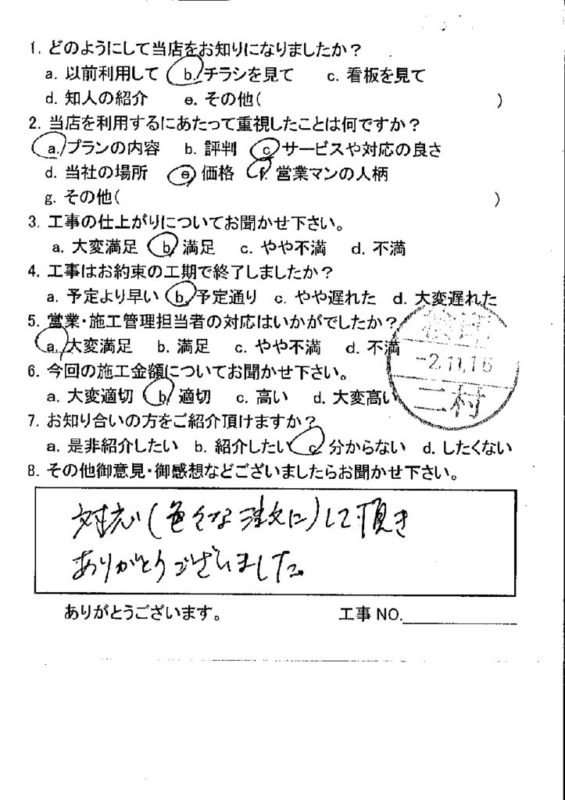 1. どのようにして当店をお知りになりましたか？
a. 以前利用して b. チラシを見て c. 看板を見て
d. 知人の紹介 e. その他( )
2. 当店を利用するにあたって重視したことは何ですか？
a. プランの内容 b. 評判 c. サービスや対応の良さ
d. 当社の場所 e. 価格 f. 営業マンの人柄
g. その他( )
3. 工事の仕上がりについてお聞かせ下さい。
a. 大変満足 b. 満足 c. やや不満 d. 不満
4. 工事はお約束の工期で終了しましたか？
a. 予定より早い b. 予定通り c. やや遅れた d. 大変遅れた
5. 営業・施工管理担当者の対応はいかがでしたか？
a. 大変満足 b. 満足 c. やや不満 d. 不満
-2.11.16
二村
6. 今回の施工金額についてお聞かせ下さい。
a. 大変適切 b. 適切 c. 高い d. 大変高い
7. お知り合いの方をご紹介頂けますか？
a. 是非紹介したい b. 紹介したい c. 分からない d. したくない
8. その他御意見・御感想などございましたらお聞かせ下さい。
対応(色々な注文に)して頂き
ありがとうございました。
ありがとうございます。 工事 NO.